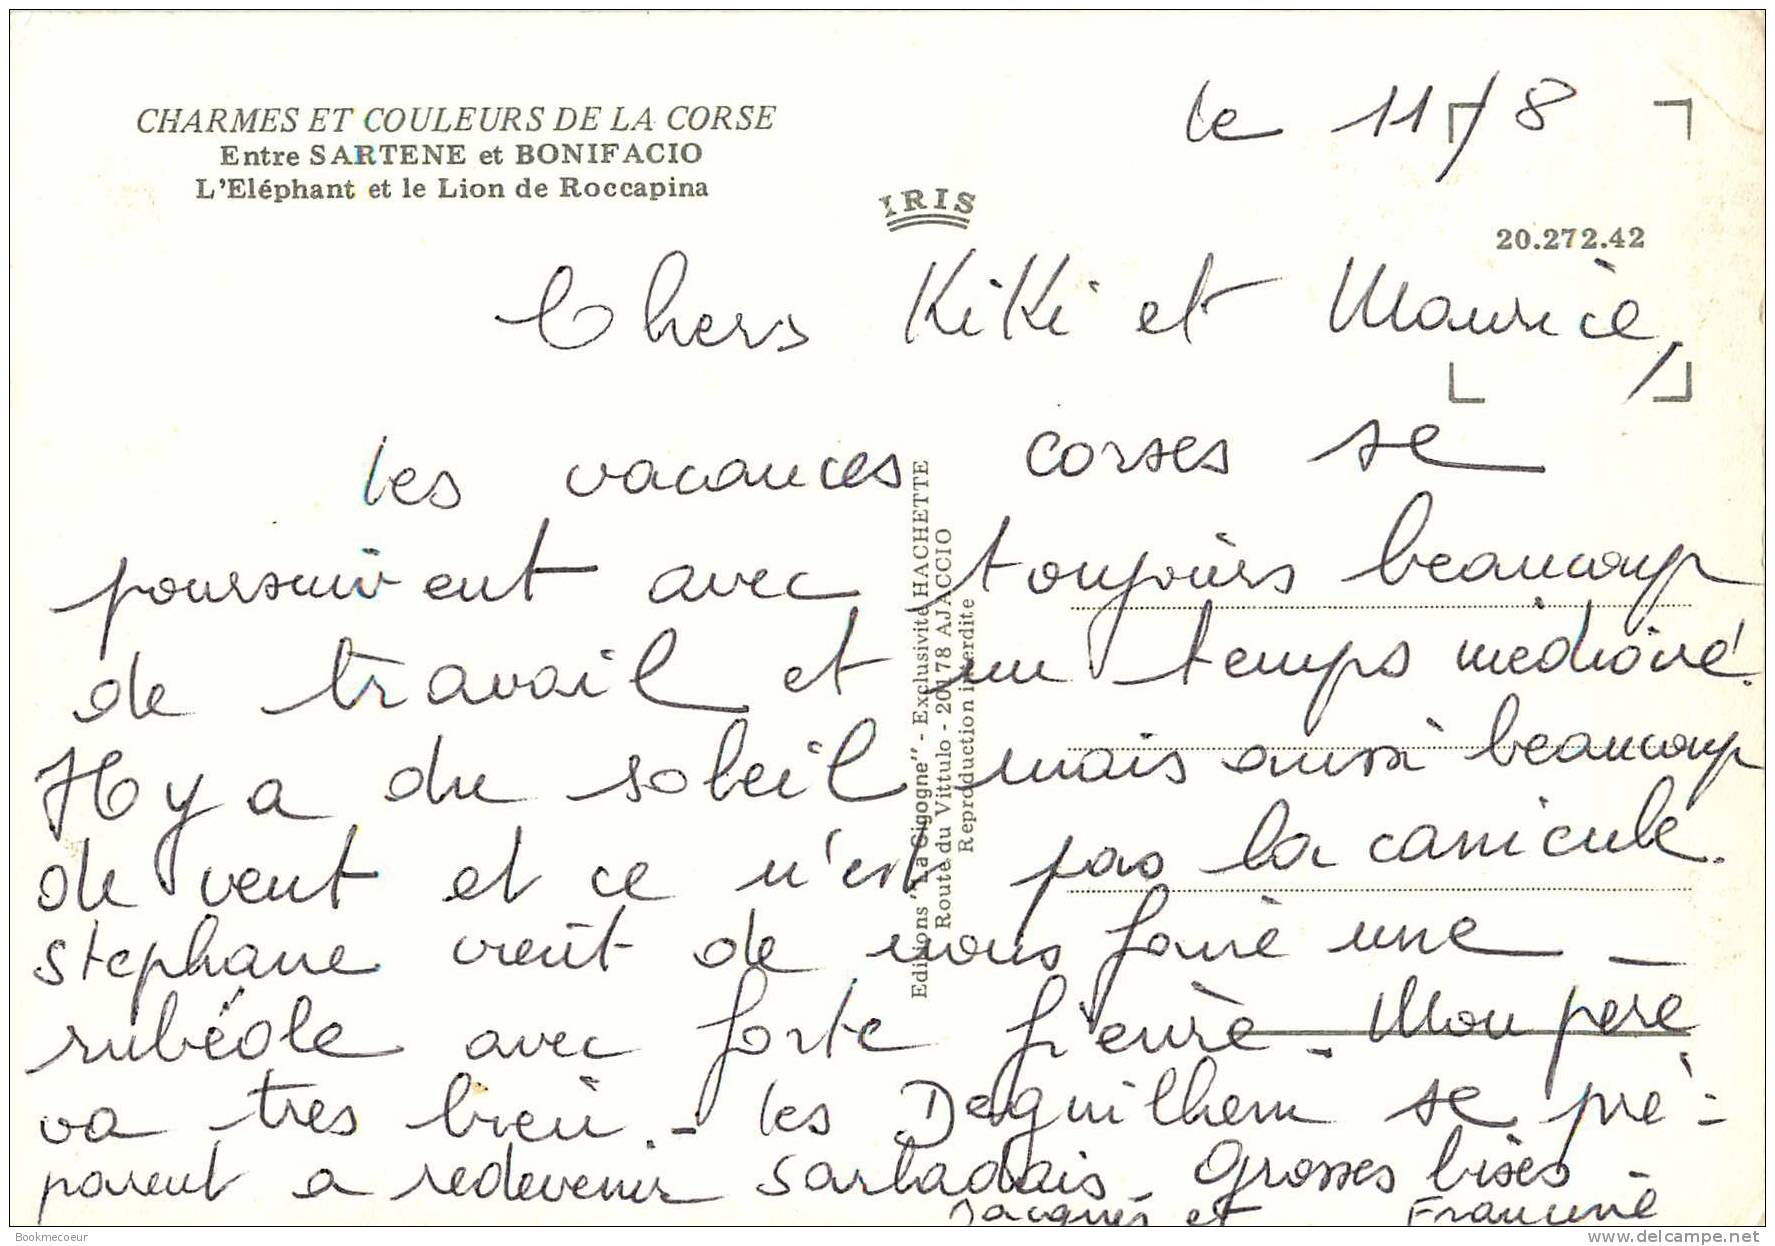 CHARMES ET COULEURS DE LA CORSE
Entre SARTENE et BONIFACIO
L'Eléphant et le Lion de Roccapina
IRIS
20.272.42
le 11/8
Chers Kiki et Maurice,
les vacances corses se
poursuivent avec toujours beaucoup
de travail et un temps médiocre.
Il y a du soleil mais aussi beaucoup
de vent et ce n'est pas la canicule.
Stephane vient de nous faire une
rubéole avec forte fièvre. Mon pere
va tres bien. - les Deguilhem se pré-
parent a redevenir sarladais - Grosses bises -
Jacques et Francine
Editions "La Cigogne" - Exclusivité HACHETTE
Route du Vittulo - 20178 AJACCIO
Reproduction interdite
Bookmecoeur
delcampe.net